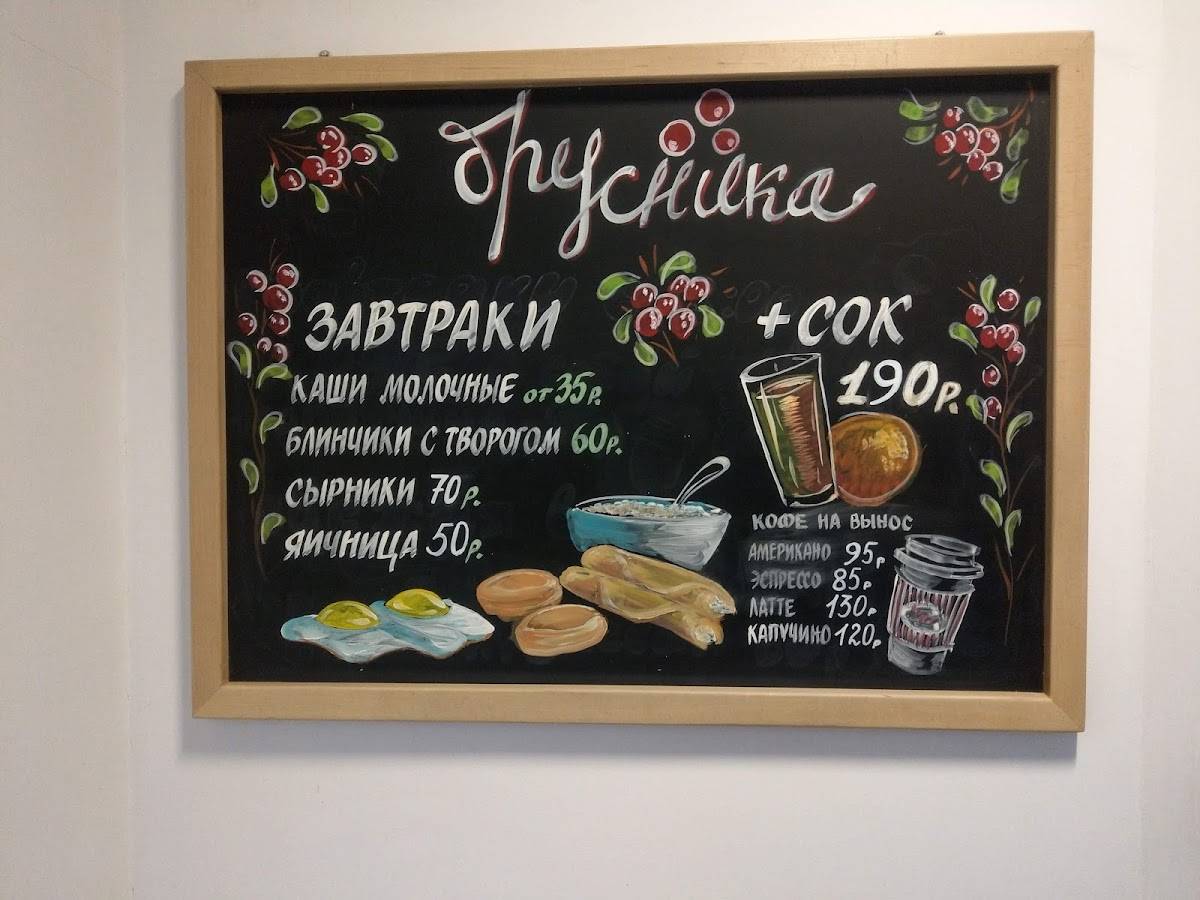 брусника
ЗАВТРАКИ
КАШИ МОЛОЧНЫЕ от 35р.
БЛИНЧИКИ С ТВОРОГОМ 60р.
СЫРНИКИ 70р.
ЯИЧНИЦА 50р.
+ СОК
190р.
КОФЕ НА ВЫНОС
АМЕРИКАНО 95р
ЭСПРЕССО 85р
ЛАТТЕ 130р
КАПУЧИНО 120р